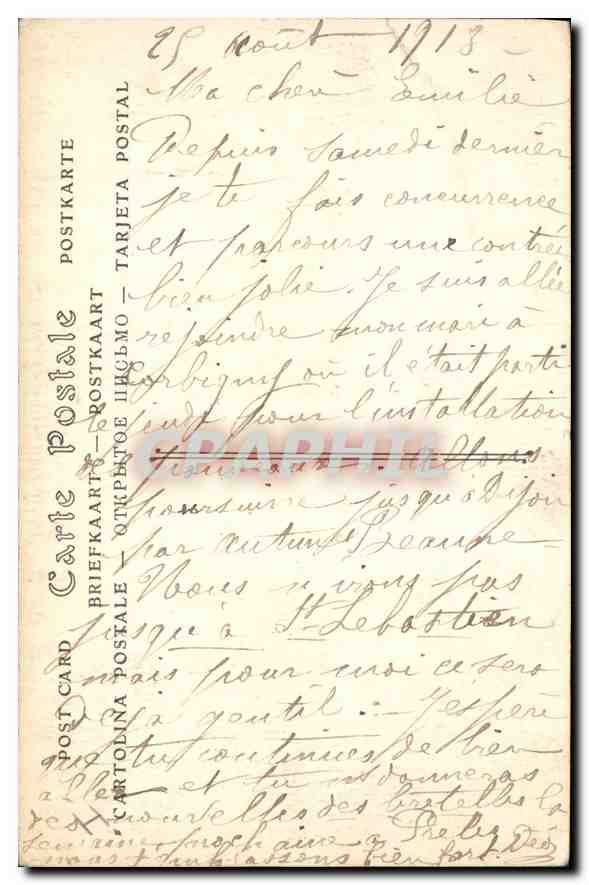 25 Août 1913
Ma chère Emilie
Depuis samedi dernier
je te fais concurrence
et parcours une contrée
bien jolie. Je suis allée
rejoindre mon mari à
Corbigny où il était parti
le jeudi pour l'installation
de
poursuivre jusqu'à Dijon
par Autun Beaune —
Nous n'irons pas
jusqu'à St Sebastien
mais pour moi ce sera
déjà gentil — J'espère
que tu continues de bien
aller et tu donneras
des nouvelles des
semaine prochaine à
nous t'embrassons bien fort.
POST CARD Carte Postale POSTKARTE
BRIEFKAART — POSTKAART
CARTOLINA POSTALE — ОТКРЫТОЕ ПИСЬМО — TARJETA POSTAL
CRAPHIL